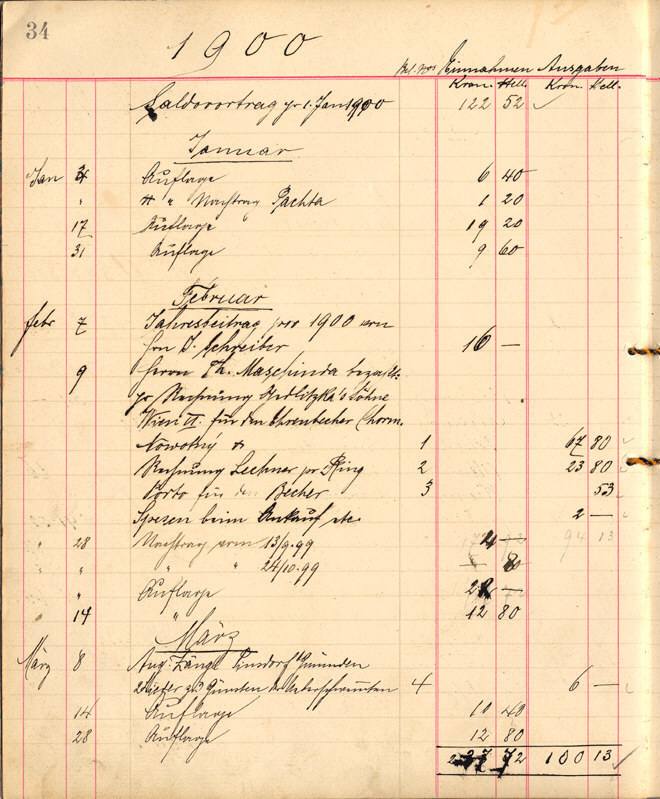 34
1900
Einnahmen Ausgaben
Kron. Hell. Kron. Hell.
Saldovortrag pr 1. Jan 1900 122 52
Januar
Jan Auflage 6 40
" " " Nachtrag Pachta 1 20
17 Auflage 19 20
31 Auflage 9 60
Februar
febr 7 Jahresbeitrag pro 1900 von
Hrn J. Schreiber 16 —
9 Herrn Th. Maschinda bezahlt
pr Rechnung Söhne
Wien für den Ehrenbecher
Nowotny 1 67 80
Rechnung Lechner pr Ring 2 23 80
Porto für den Becher 3 53
Spesen beim Ankauf etc. 2 —
" 28 Nachtrag vom 13/9.99 94 13
" " " " 24/10.99 80
" Auflage —
14 " 12 80
März
März 8 Aug. Zängl Gmunden
4 6 —
14 Auflage 10 40
28 Auflage 12 80
72 100 13